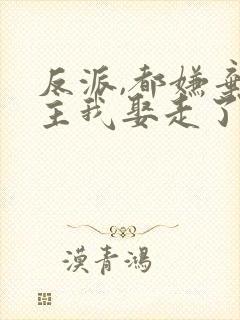 反派,都嫌弃
主我娶走了
漠青鴻